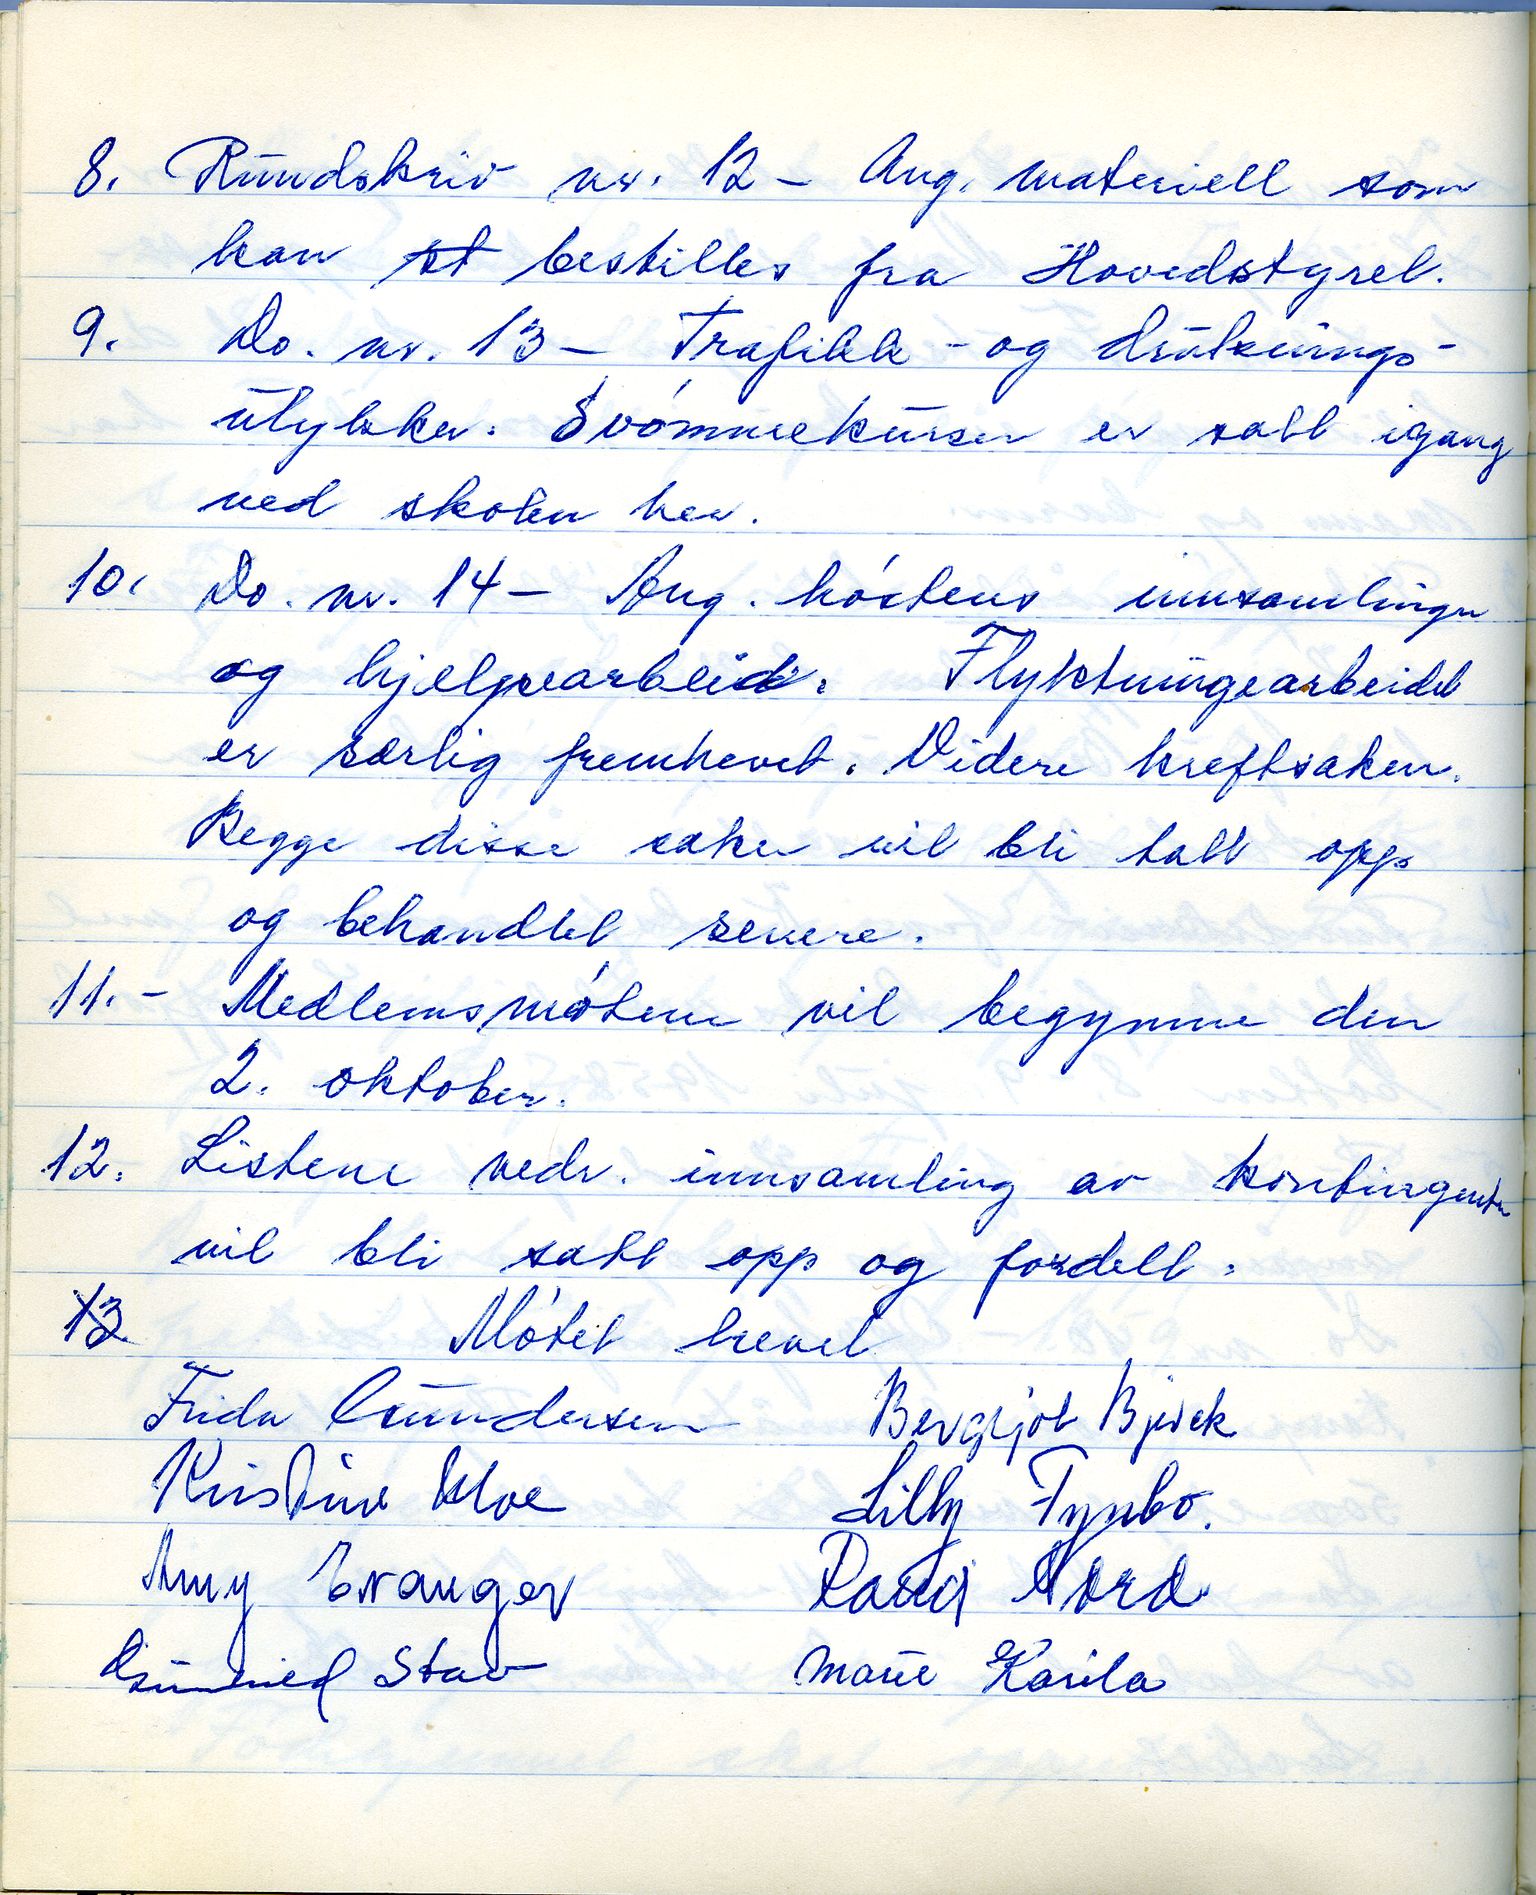 8. Rundskriv nr. 12 – Ang. materiell som
kan st bestilles fra Hovedstyret.
9. Do. nr. 13 – Trafikk- og druknings-
ulykker. Svómmekurser er satt igang
ved skolen her.
10. Do. nr. 14 – Ang. hóstens innsamlinger
og hjelpearbeid. Flyktningearbeidet
er særlig fremhevet. Videre kreftsaken.
Begge disse saker vil bli tatt opp
og behandlet senere.
11. – Medlemsmótene vil begynne den
2. oktober.
12. Listene vedr. innsamling av kontingenten
vil bli satt opp og fordelt.
13 Mótet hevet
Frida Gundersen Bergljót Bjórck
Kristine Moe Lilly Tynbo.
Amy Evanger Nord
Gunhild Stav Marie Karila